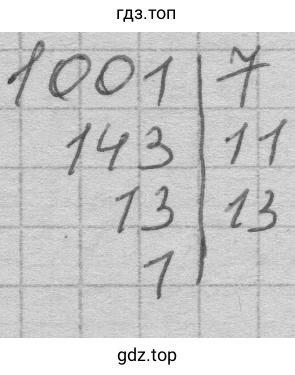 гдз.топ
1001 | 7
143 | 11
13 | 13
1 |
gdz.top